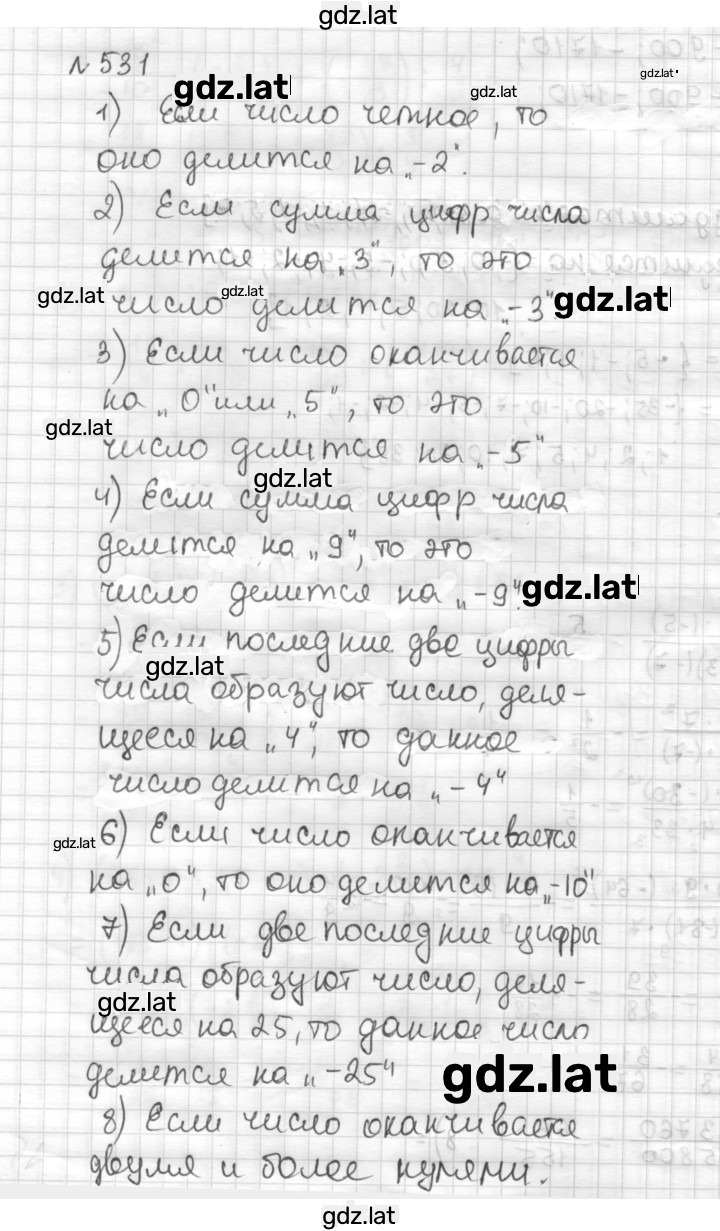 gdz.lat
№ 531
gdz.lat gdz.lat gdz.lat
1) Если число четное, то
оно делится на „-2".
2) Если сумма цифр числа
делится на „3", то это
gdz.lat gdz.lat
число делится на „-3" gdz.lat
3) Если число оканчивается
на „0" или „5", то это
gdz.lat
число делится на „-5"
gdz.lat
4) Если сумма цифр числа
делится на „9", то это
число делится на „-9". gdz.lat
5) Если последние две цифры
gdz.lat
числа образуют число, деля-
щееся на „4", то данное
число делится на „-4"
gdz.lat
6) Если число оканчивается
на „0", то оно делится на „-10"
7) Если две последние цифры
числа образуют число, деля-
gdz.lat
щееся на 25, то данное число
делится на „-25" gdz.lat
8) Если число оканчивается
двумя и более нулями.
gdz.lat